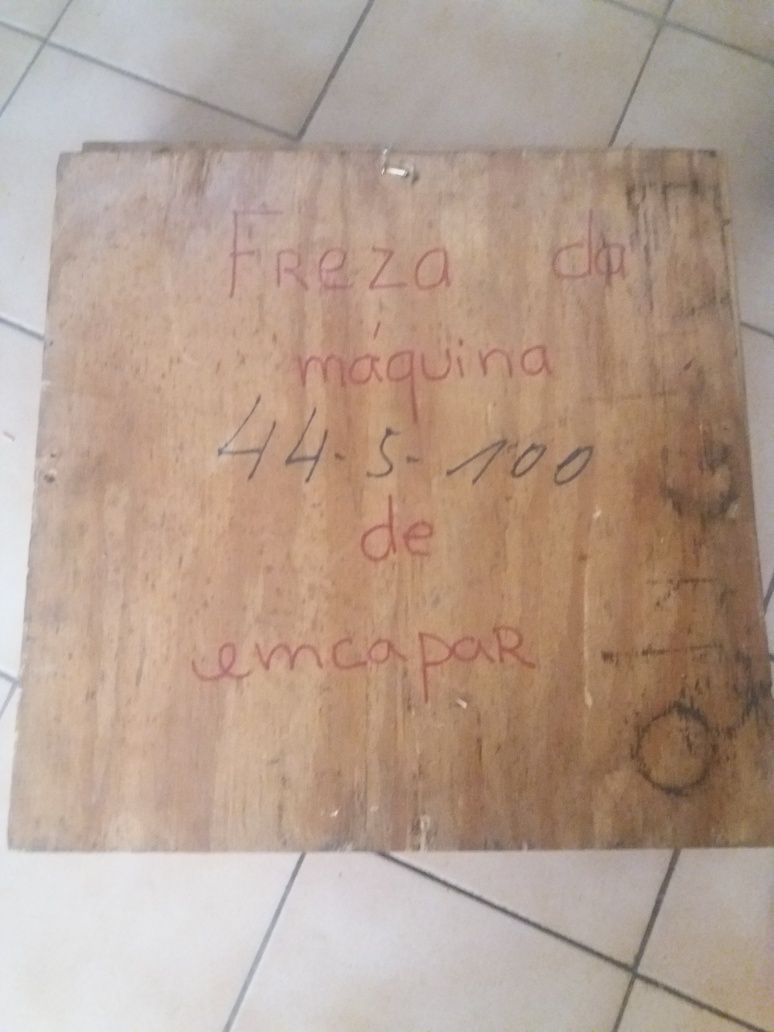 FReza da
máquina
44-5-100
de
emcapaR